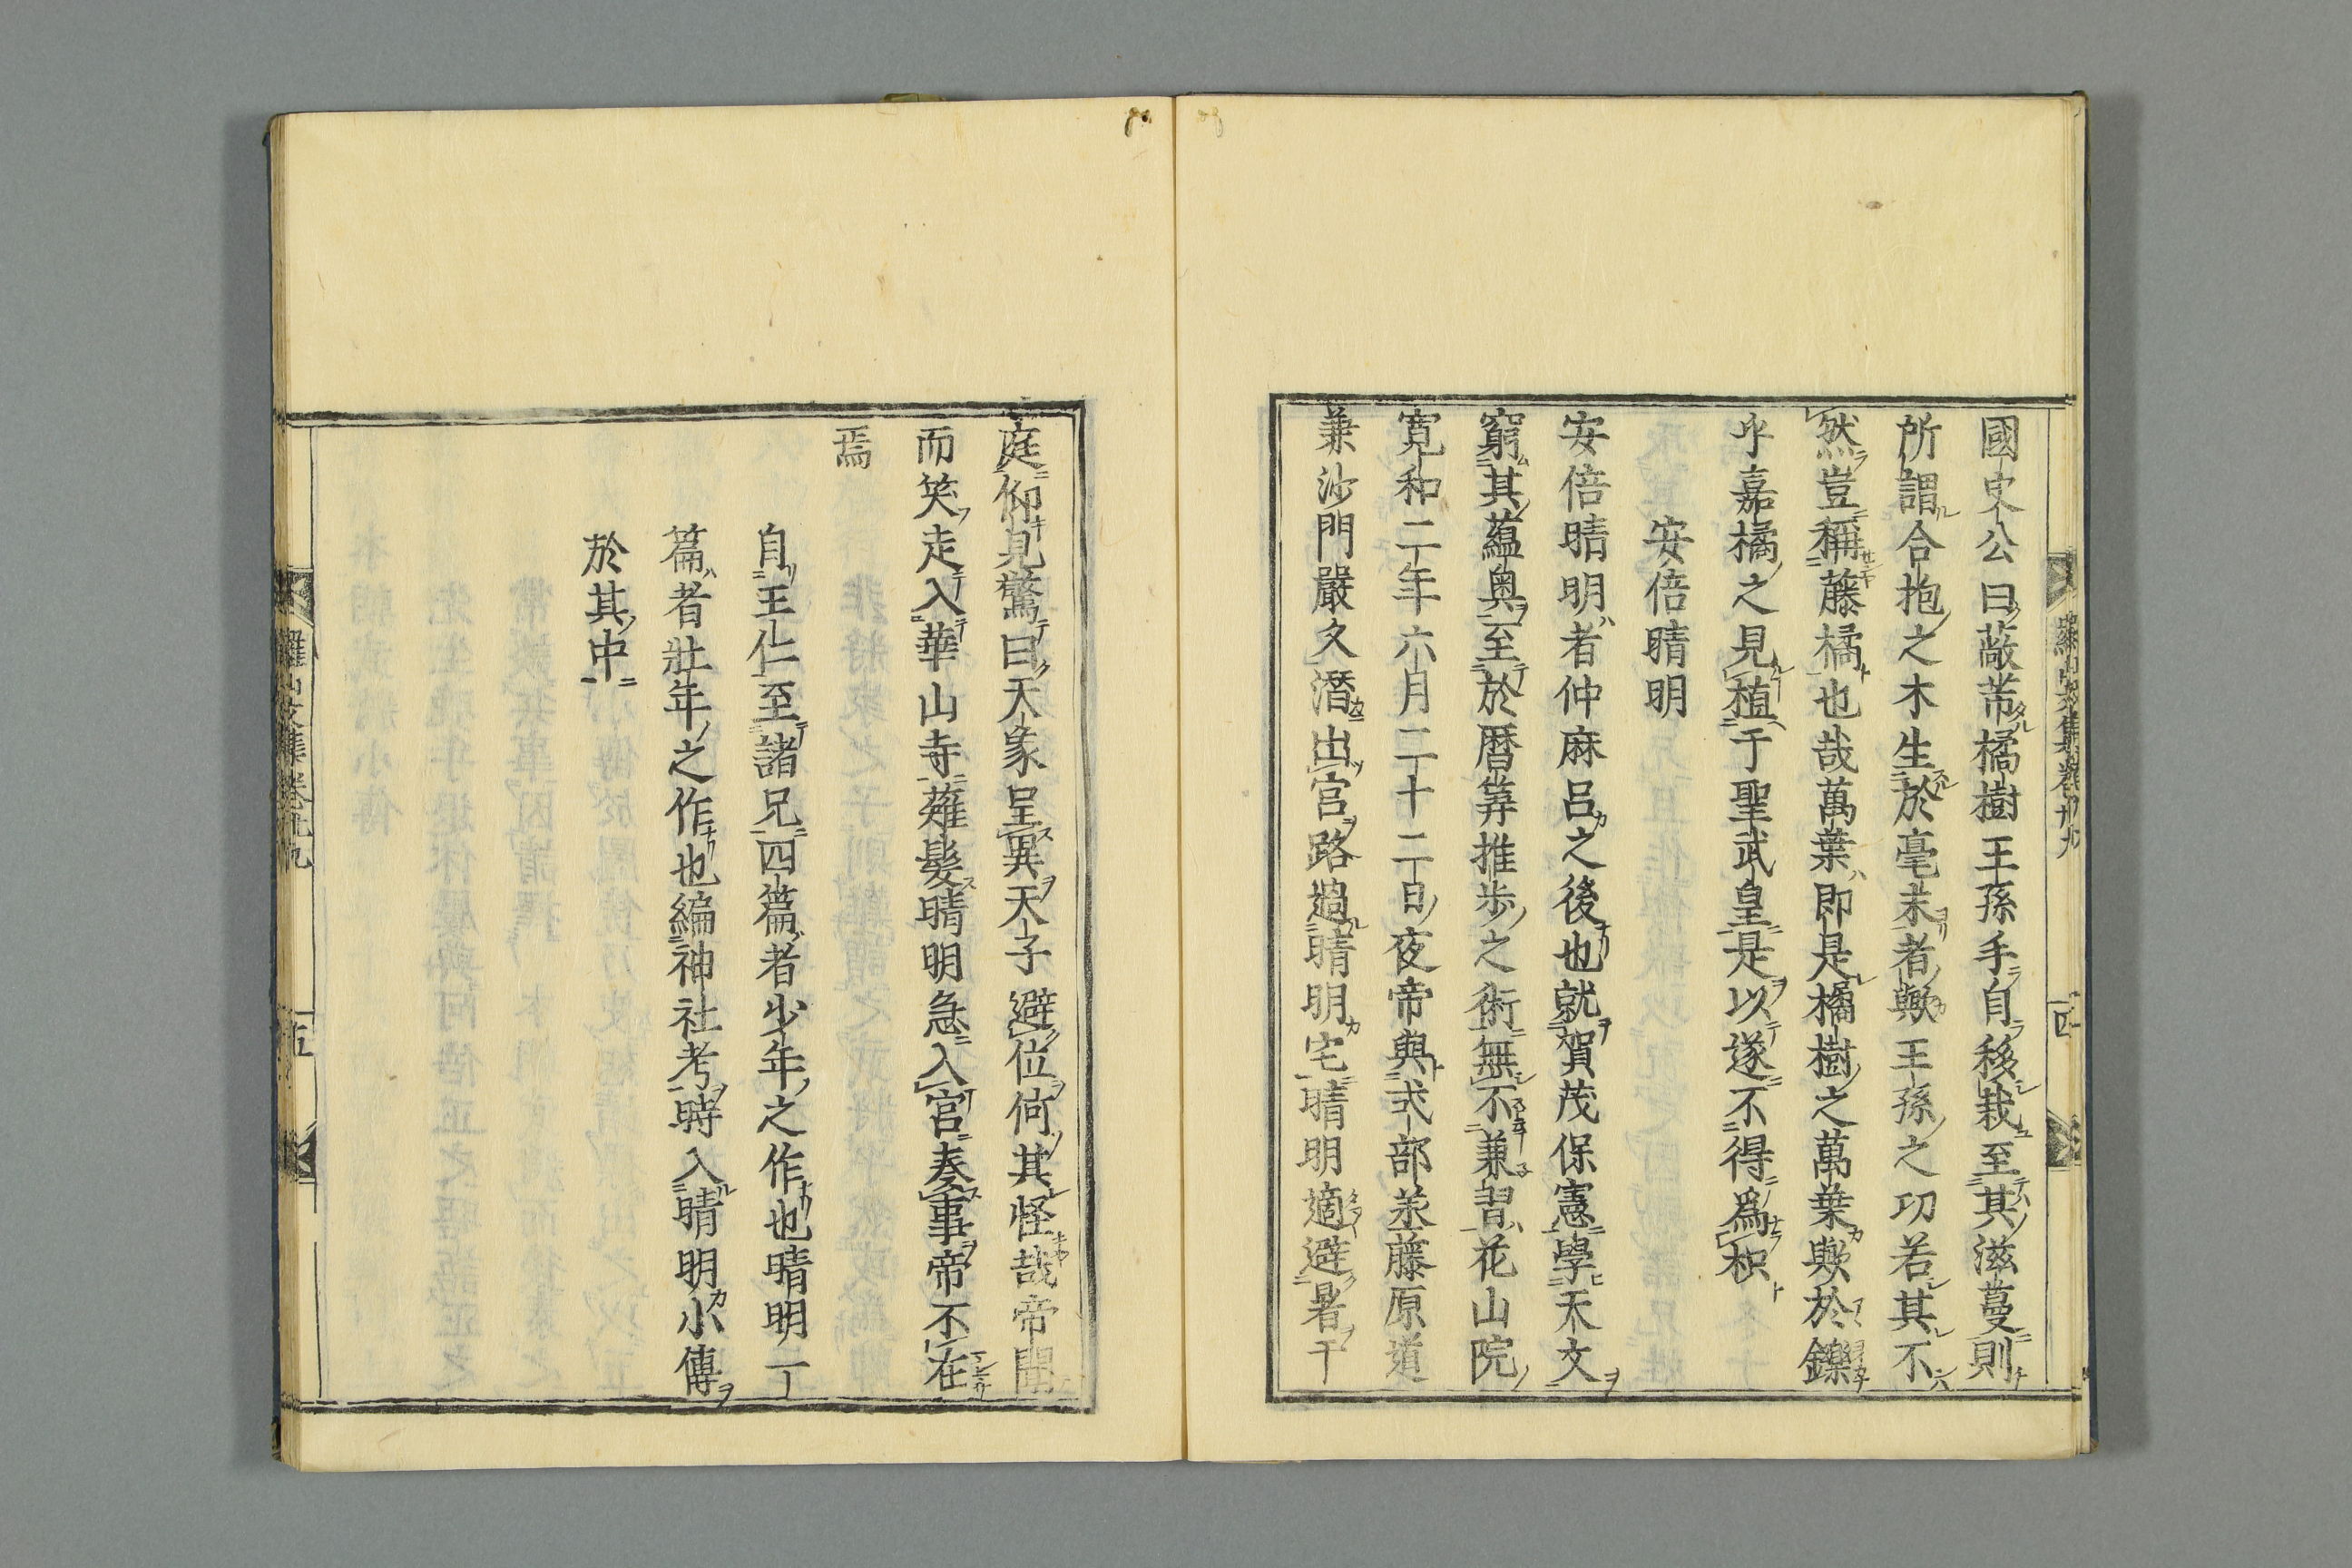 國史公曰蔽芾橘樹王孫手自移栽至其滋蔓則
所謂合抱之木生於毫末者歟王孫之功若其不
然豈稱藤橘也哉萬葉即是橘樹之萬葉歟於鑠
乎嘉橘之見植于聖武皇是以遂不得爲枳
安倍晴明
安倍晴明者仲麻呂之後也就賀茂保憲學天文
窮其蘊奥至於暦筭推歩之術無不兼習花山院
寛和二年六月二十二日夜帝與式部丞藤原道
兼沙門嚴久潛出宮路過晴明宅晴明適避暑于
庭仰見驚曰天象呈異天子避位何其怪哉帝聞
而笑走入華山寺薙髮晴明急入宮奏事帝不在
焉
自王仁至諸兄四篇者少年之作也晴明一
篇者壯年之作也編神社考時入晴明小傳
於其中
羅山文集卷卅九
四
羅山文集卷卅九
五